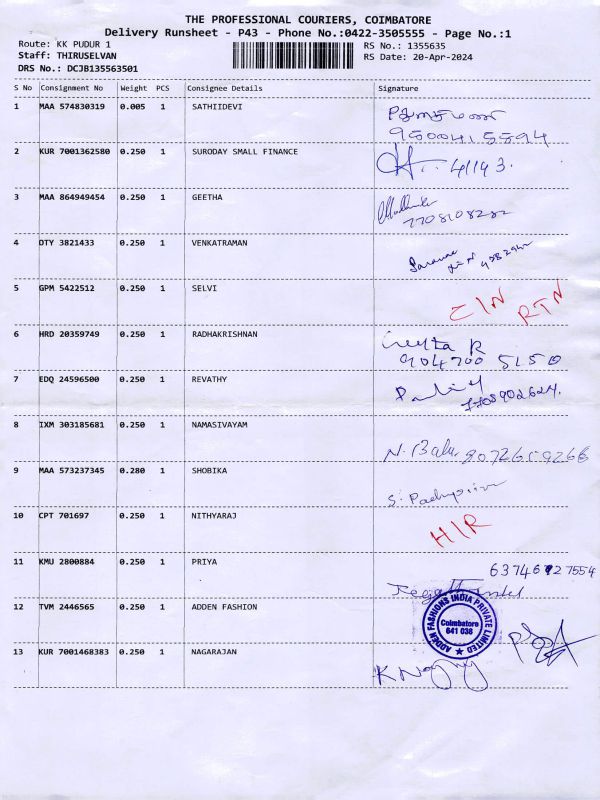 THE PROFESSIONAL COURIERS, COIMBATORE
Delivery Runsheet - P43 - Phone No.:0422-3505555 - Page No.:1
Route: KK PUDUR 1
RS No.: 1355635
Staff: THIRUSELVAN
RS Date: 20-Apr-2024
DRS No.: DCJB135563501
S No Consignment No Weight PCS Consignee Details Signature
1 MAA 574830319 0.005 1 SATHIIDEVI
9800415894
2 KUR 7001362580 0.250 1 SURODAY SMALL FINANCE 41193.
3 MAA 864949454 0.250 1 GEETHA
7708108282
4 DTY 3821433 0.250 1 VENKATRAMAN
5 GPM 5422512 0.250 1 SELVI
CIN RTN
6 HRD 20359749 0.250 1 RADHAKRISHNAN
Geetha R
904700 5150
7 EDQ 24596500 0.250 1 REVATHY
7708902624.
8 IXM 303185681 0.250 1 NAMASIVAYAM
N. Balu 8072659266
9 MAA 573237345 0.280 1 SHOBIKA
S.
10 CPT 701697 0.250 1 NITHYARAJ
HIR
11 KMU 2800884 0.250 1 PRIYA
6374612 7554
12 TVM 2446565 0.250 1 ADDEN FASHION
ADDEN FASHIONS INDIA PRIVATE LIMITED
Coimbatore
641 038
13 KUR 7001468383 0.250 1 NAGARAJAN